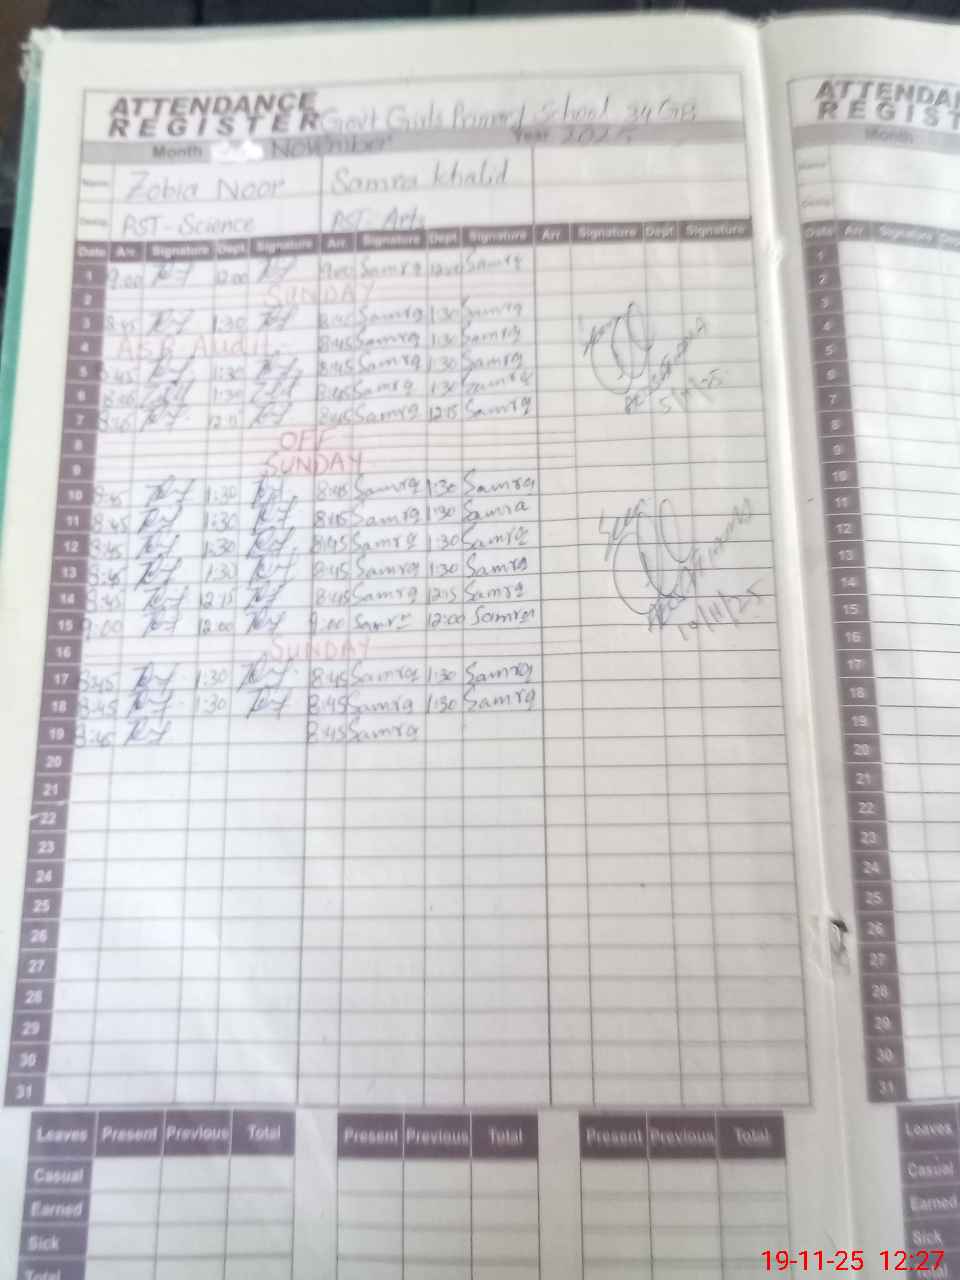 ATTENDANCE
REGISTER Govt Girls Primary School 34 GB
Month November Year 2025
Name Zobia Noor Samra Khalid
PST-Science PST-Arts
Date Arr. Signature Dept Signature Arr. Signature Dept Signature Arr Signature Dept Signature
1 9:00 12:00 9:00 Samra 12:00 Samra
2 SUNDAY
3 8:45 1:30 8:45 Samra 1:30 Samra
4 Audit 8:45 Samra 1:30 Samra
5 8:45 1:30 8:45 Samra 1:30 Samra
6 8:45 1:30 8:45 Samra 1:30 Samra
7 8:45 12:15 8:45 Samra 12:15 Samra
8 OFF
9 SUNDAY
10 8:45 1:30 8:45 Samra 1:30 Samra
11 8:45 1:30 8:45 Samra 1:30 Samra
12 8:45 1:30 8:45 Samra 1:30 Samra
13 8:45 1:30 8:45 Samra 1:30 Samra
14 8:45 12:15 8:45 Samra 12:15 Samra
15 9:00 12:00 9:00 Samra 12:00 Samra
16 SUNDAY
17 8:45 1:30 8:45 Samra 1:30 Samra
18 8:45 1:30 8:45 Samra 1:30 Samra
19 8:45 8:45 Samra
20
21
22
23
24
25
26
27
28
29
30
31
Leaves Present Previous Total Present Previous Total Present Previous Total
Casual
Earned
Sick
Total
ATTENDA
REGIST
Month
Date Arr Signature
1
2
3
4
5
6
7
8
9
10
11
12
13
14
15
16
17
18
19
20
21
22
23
24
25
26
27
28
29
30
31
Leaves
Casual
Earned
Sick
Total
19-11-25 12:27